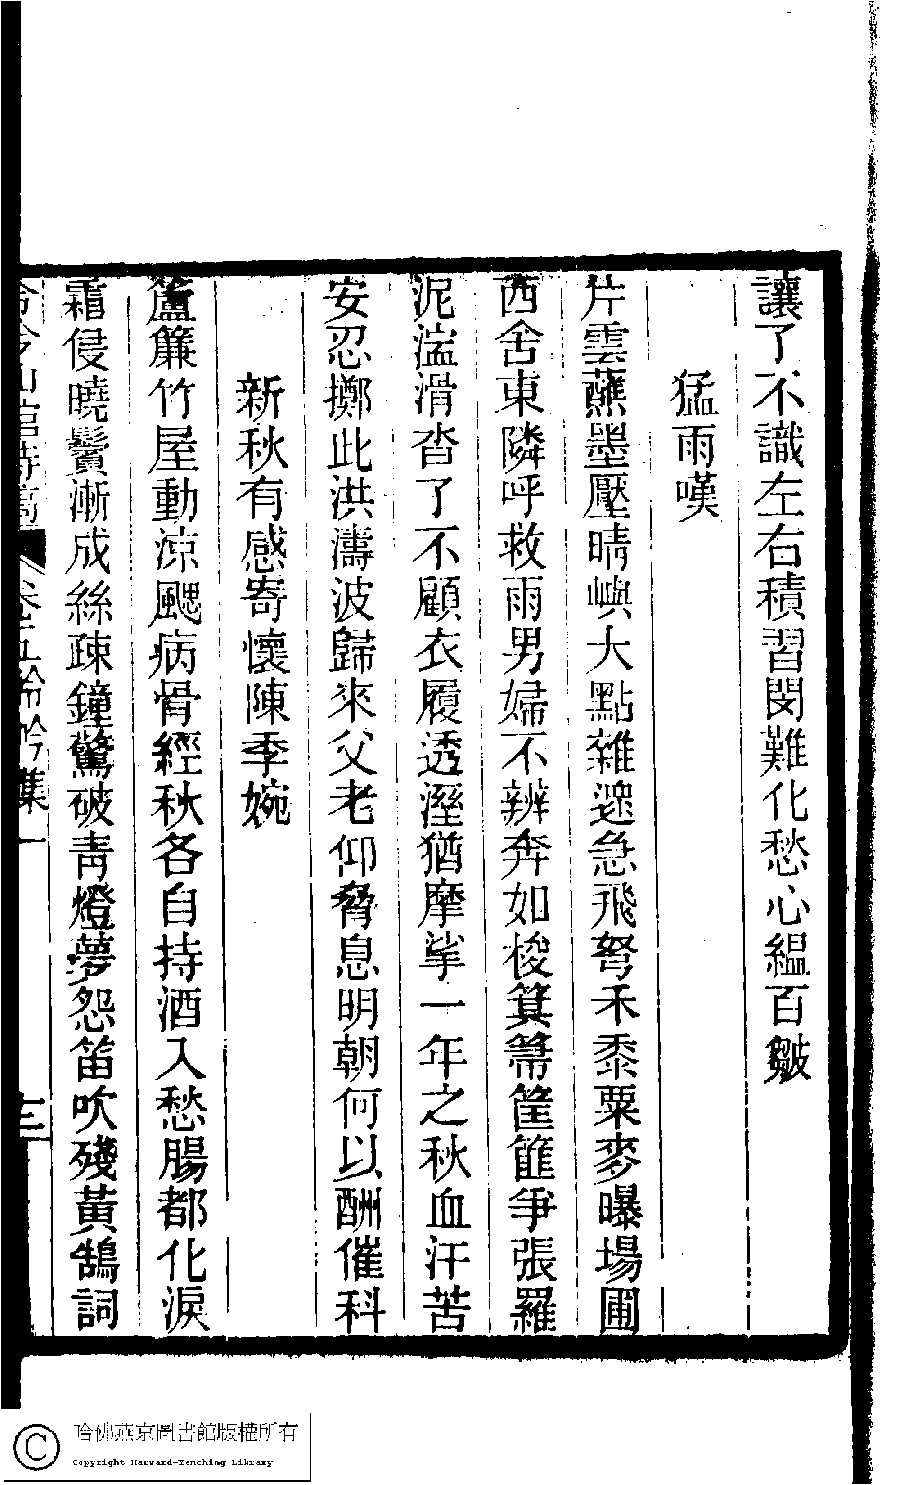 讓了不識左右積習閔難化愁心縕百皺
猛雨嘆
片雲蘸墨壓晴嶼大點雜遝急飛弩禾黍粟麥曝場圃
西舍東隣呼救雨男婦不辨奔如梭箕箒筐篚爭張羅
泥湍滑沓了不顧衣履透溼猶摩挲一年之秋血汗苦
安忍擲此洪濤波歸來父老仰脅息明朝何以酬催科
新秋有感寄懷陳季婉
簾竹屋動涼颸病骨經秋各自持酒入愁腸都化淚
霜侵曉鬢漸成絲疎鐘驚破青燈夢怨笛吹殘黃鵠詞
山館詩
卷五吟集一
十三
哈佛燕京圖書館版權所有
Copyright Harvard-Yenching Library